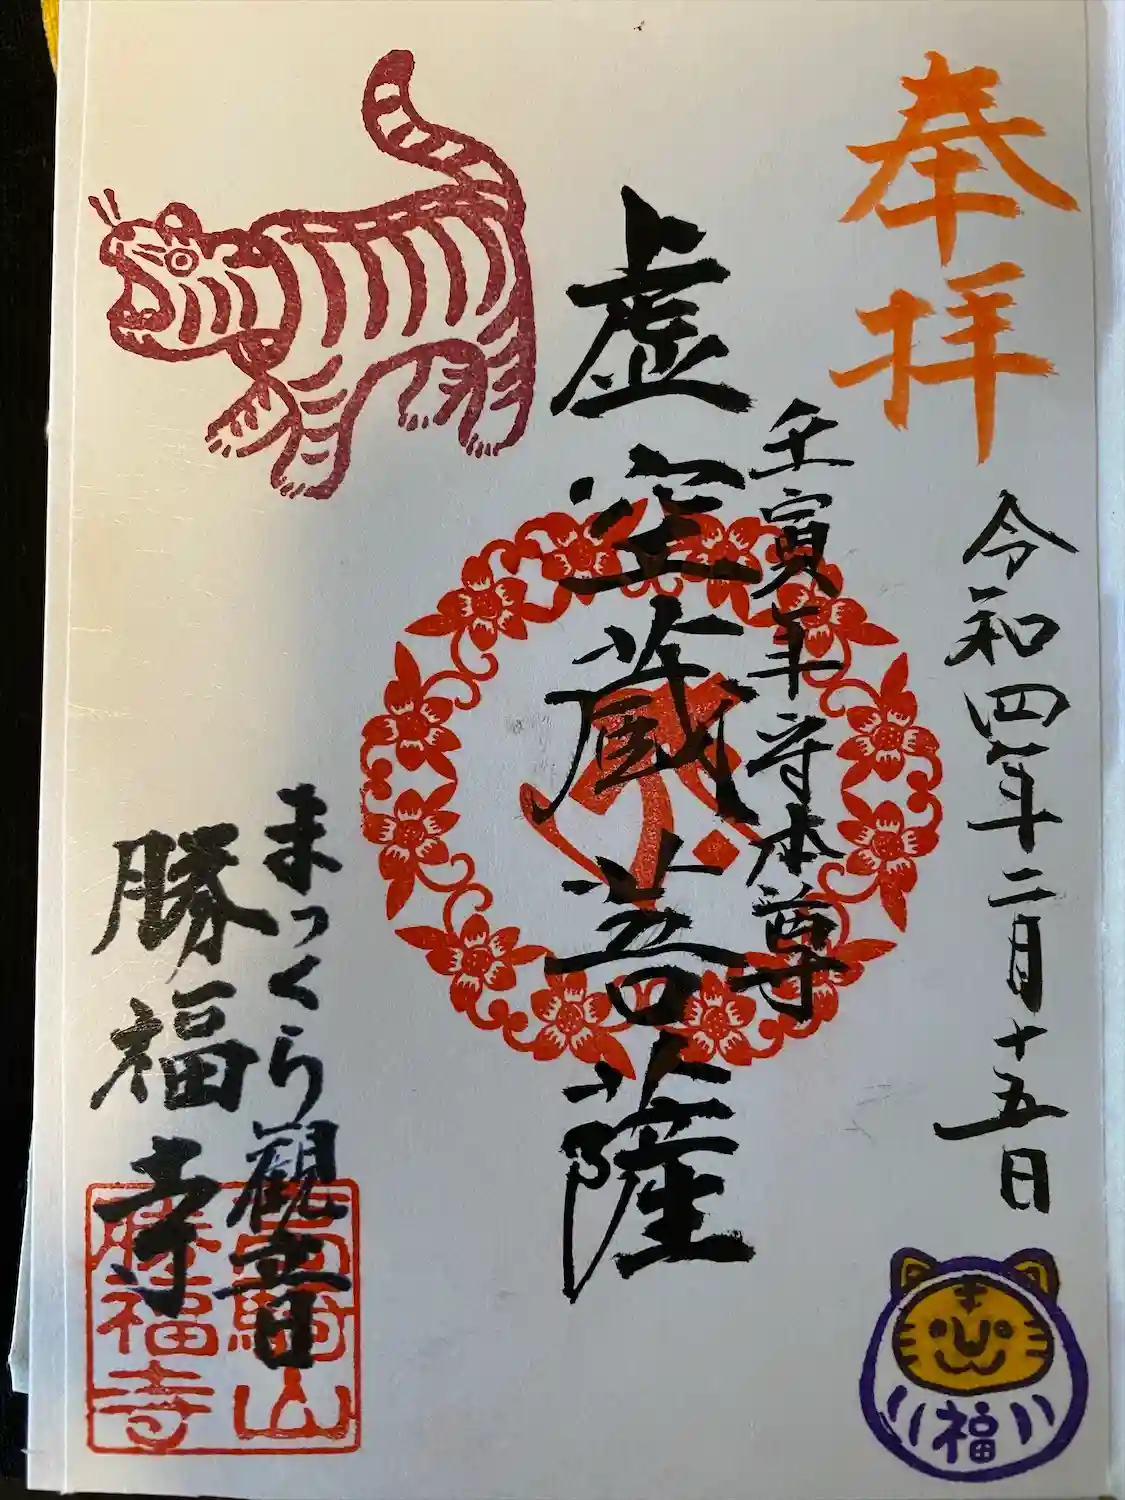 奉拝
令和四年二月十五日
壬寅年守本尊
虚空蔵菩薩
まっくら観音
勝福寺
勝福寺
福